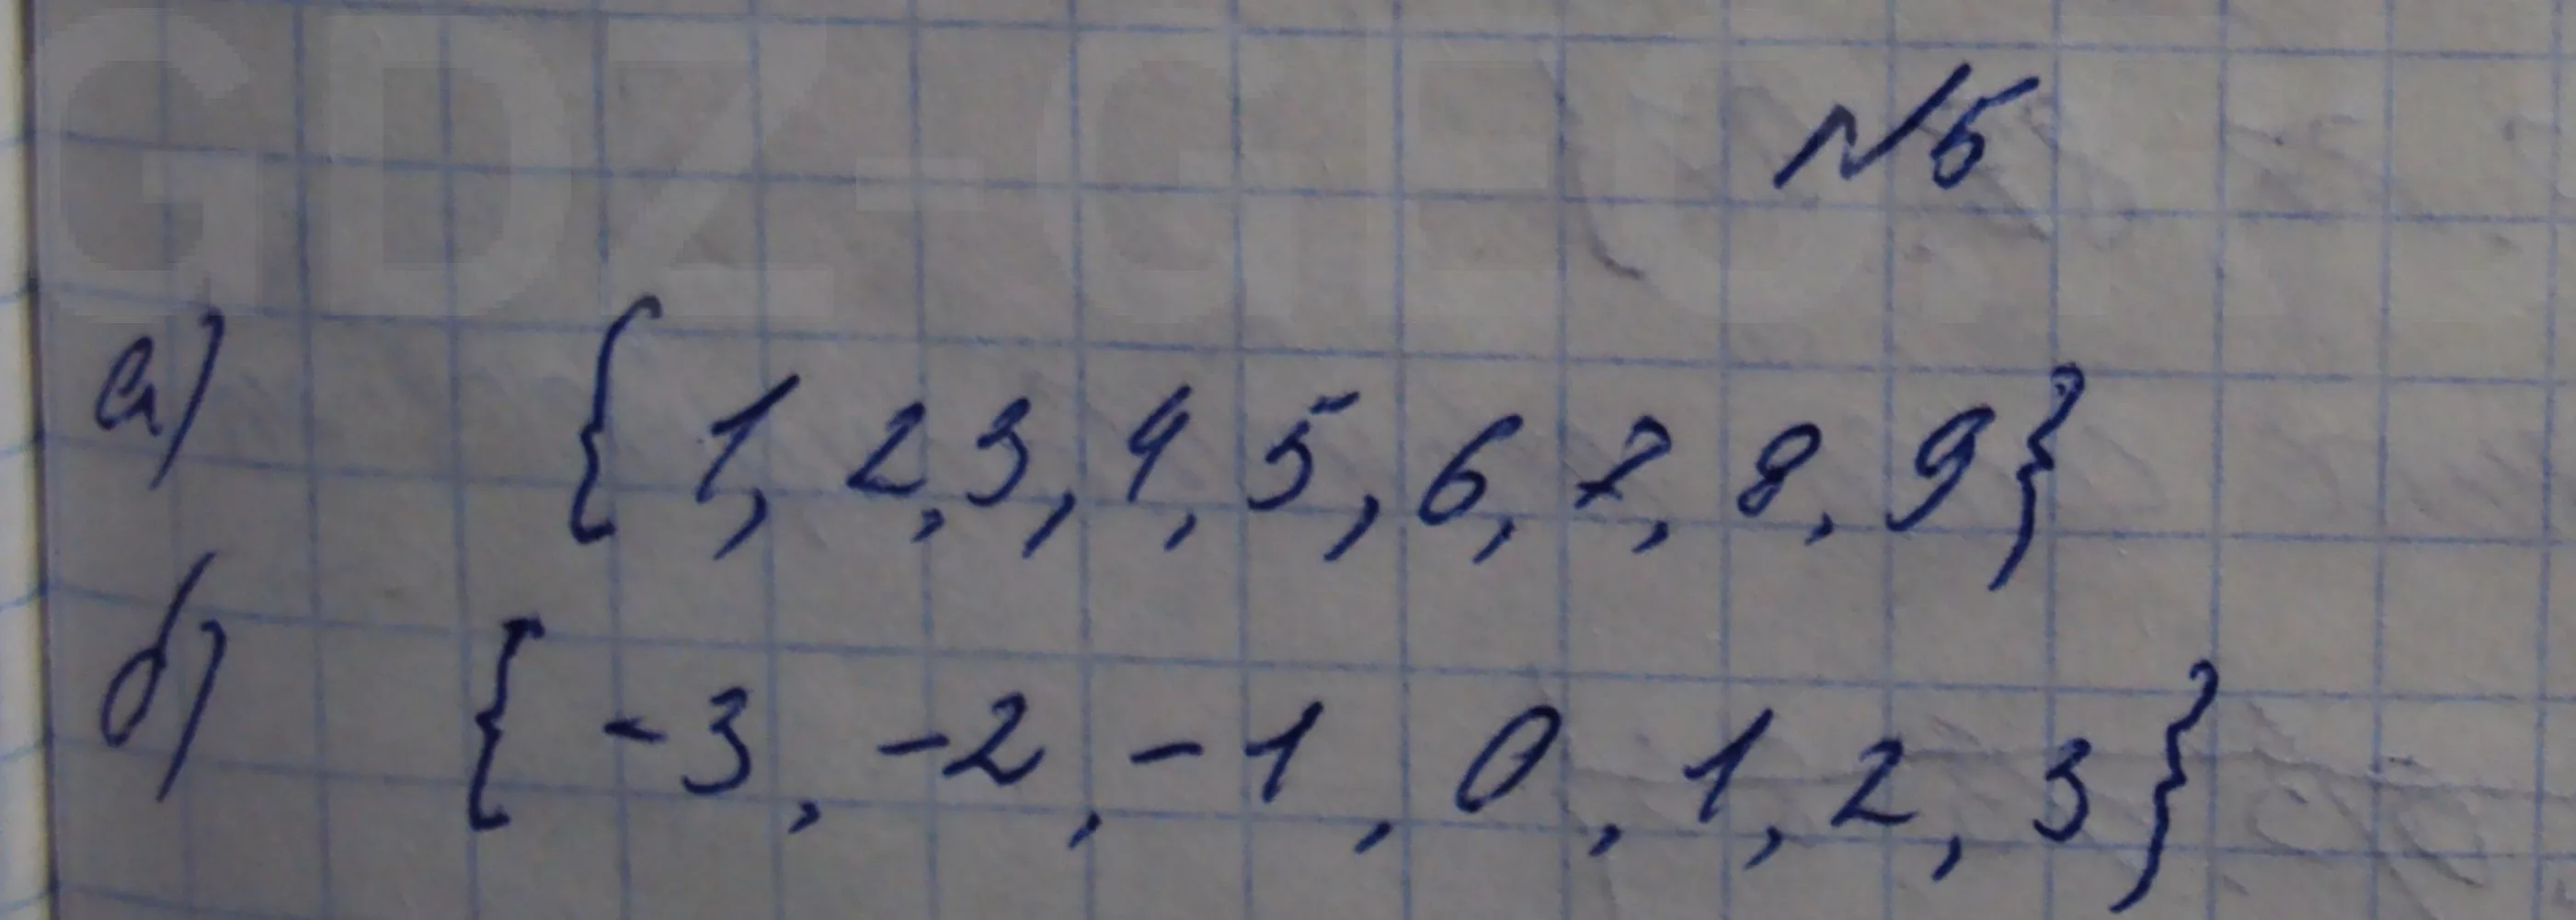 GDZ-GEO
№5
а) {1, 2, 3, 4, 5, 6, 7, 8, 9}
б) {-3, -2, -1, 0, 1, 2, 3}